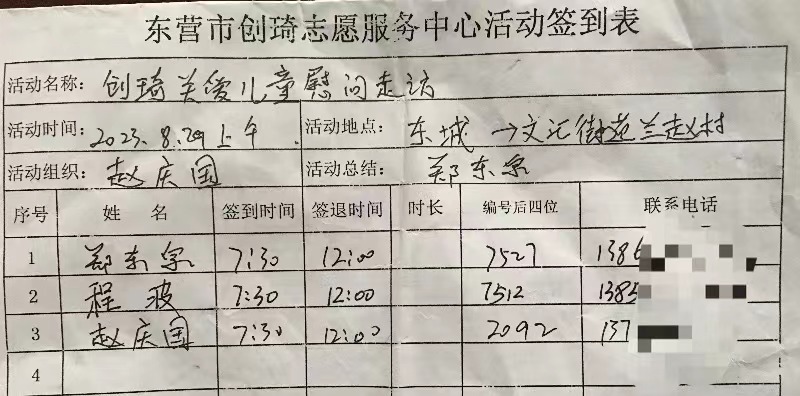 东营市创琦志愿服务中心活动签到表
活动名称: 创琦关爱儿童慰问走访
活动时间: 2023.8.29上午. 活动地点: 东城→文汇街苑兰赵村
活动组织: 赵庆国 活动总结: 郑东
序号 姓 名 签到时间 签退时间 时长 编号后四位 联系电话
1 郑东 7:30 12:00 7527 1386
2 程波 7:30 12:00 7512 1385
3 赵庆国 7:30 12:00 2092 137
4